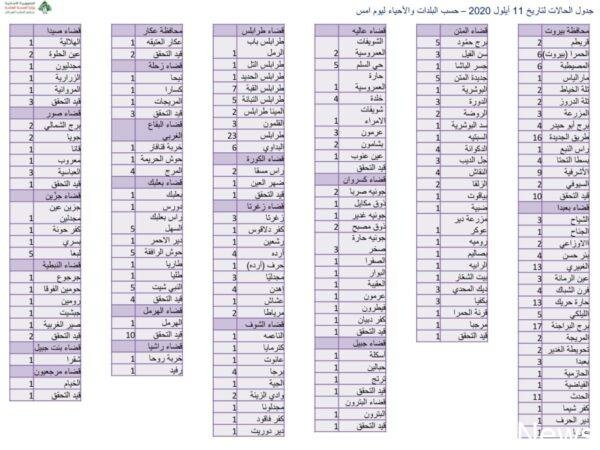 جدول الحالات لتاريخ 11 أيلول 2020 – حسب البلدات والأحياء ليوم امس
محافظة بيروت
قريطم 2
الحمرا (بيروت) 6
المصيطبة 6
مار الياس 1
تلة الخياط 2
تلة الدروز 2
برج أبو حيدر 4
طريق الجديدة 16
راس النبع 1
بسطا التحتا 4
الأشرفية 9
السيوفي 2
قيد التحقق 10
قضاء بعبدا
الشياح 3
الجناح 1
الاوزاعي 2
بئر حسن 4
الغبيري 13
عين الرمانة 3
فرن الشباك 4
حارة حريك 13
الليلكي 5
برج البراجنة 17
المريجة 2
تحويطة الغدير 2
بعبدا 3
الحازمية 1
الفياضية 1
الحدث 11
كفر شيما 1
دير الحرف 1
قضاء المتن
برج حمود 5
سن الفيل 3
جسر الباشا 1
جديدة المتن 5
البوشرية 1
الدورة 3
الروضة 2
سد البوشرية 1
السبتيه 1
الدكوانة 4
جل الديب 3
النقاش 4
الزلقا 2
بياقوت 1
ضبية 1
مزرعة دير
عوكر 1
روميه 1
بصاليم 1
الرابيه 1
بيت الشعار 1
ديك المحدي 3
بكفيا 3
قرنة الحمرا 1
مرجبا 1
قيد التحقق
قضاء عاليه
الشويفات
العمروسية 2
حي السلم 5
حارة
العمروسية 1
خلدة 4
شويفات
الامراء 1
عرمون 3
بشامون 2
عين عنوب 1
قيد التحقق
قضاء كسروان
جونيه صربا 2
ذوق مكايل 1
جونيه غدير 1
ذوق مصبح 2
جونيه حارة
صخر 3
الصفرا 1
البوار 1
العقيبة 1
عرمون 1
فيطرون 1
كفر دبيان 1
قيد التحقق
قضاء جبيل
حبالين 1
ترتج 1
قيد التحقق
قضاء البترون
البترون 1
قيد التحقق
قضاء طرابلس
طرابلس باب
الرمل 1
طرابلس التل 1
طرابلس الحديد 1
طرابلس القبة 7
طرابلس التبانة 5
المينا طرابلس 2
القلمون 3
طرابلس 23
البداوي 6
قضاء الكورة
راس مسقا 2
ضهر العين 1
قيد التحقق 1
قضاء زغرتا
زغرتا 3
كفر دلاقوس 1
رشعين 1
أرده 4
حرف (أرده) 1
مجدليا 3
إهدن 4
عشاش 1
مرياطا 2
قضاء الشوف
الناعمه 1
كترمايا 1
عانوت 1
برجا 4
الجية 1
وادي الزينة 2
مجدلونا 1
كفر فاقود 1
دير دوريت 1
محافظة عكار
عكار العتيقه 1
قيد التحقق 2
قضاء زحلة
تيحا 1
كسارا 1
المريجات 1
قيد التحقق 3
قضاء البقاع
الغربي
خربة قنافار 1
حوش الحريمة 1
المرج 4
قضاء بعلبك
بعلبك 1
دورس 1
راس بعلبك
السهل 5
دير الاحمر 1
حوش الرافقة 5
طاريا 1
طليا 1
النبي شيت 5
قيد التحقق 4
قضاء الهرمل
الهرمل 1
قيد التحقق 10
قضاء راشيا
خربة روحا 1
رفيد 1
قضاء صيدا
الهلالية 1
عين الحلوة 2
مجدليون 1
الزرارية 1
المروانية 1
قيد التحقق 3
قضاء صور
برج الشمالي 2
جويا 2
قانا 1
معروب 1
العباسية 3
قيد التحقق 1
قضاء جزين
جزين عين
مجدلين 1
كفر حونة 1
بسري 1
لبعا 5
قضاء النبطية
جرجوع 1
حومين الفوقا 1
رومين 1
جبشيت 1
صير الغربية 1
قيد التحقق 2
قضاء بنت جبيل
شقرا 1
قضاء مرجعيون
الخيام 1
قيد التحقق 1